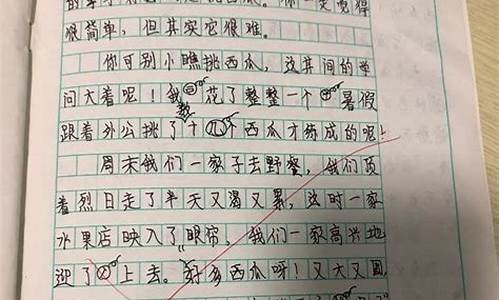 的
很简单，但其实它很难。
你可别小瞧挑西瓜，这其间的学
问大着呢！我花了整整一个暑假
跟着外公挑了十几个西瓜才练成的呢！
周末我们一家子去野餐，我们顶
着烈日走了半天又渴又累，这时一家
水果店映入了眼帘，我们一家高兴地
迎了上去。好多西瓜呀！又大又圆，